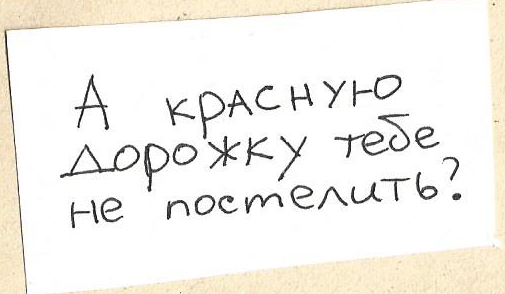 А красную
дорожку тебе
не постелить?